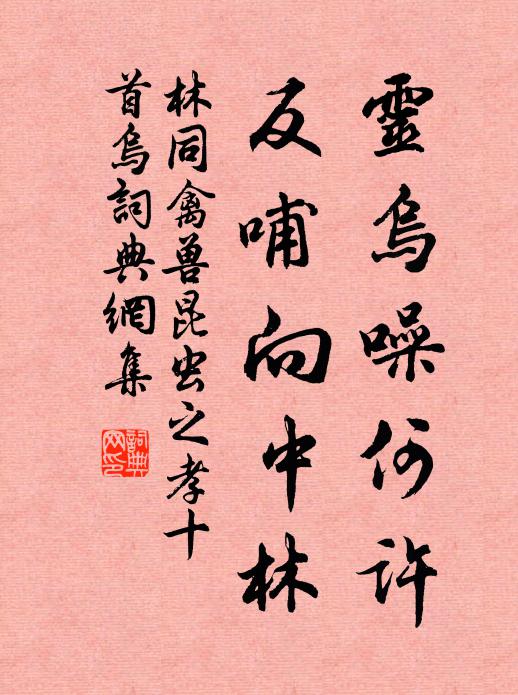 靈烏噪何許
反哺向中林
林同禽兽昆虫之孝十
首烏詞典網集
詞典
网印